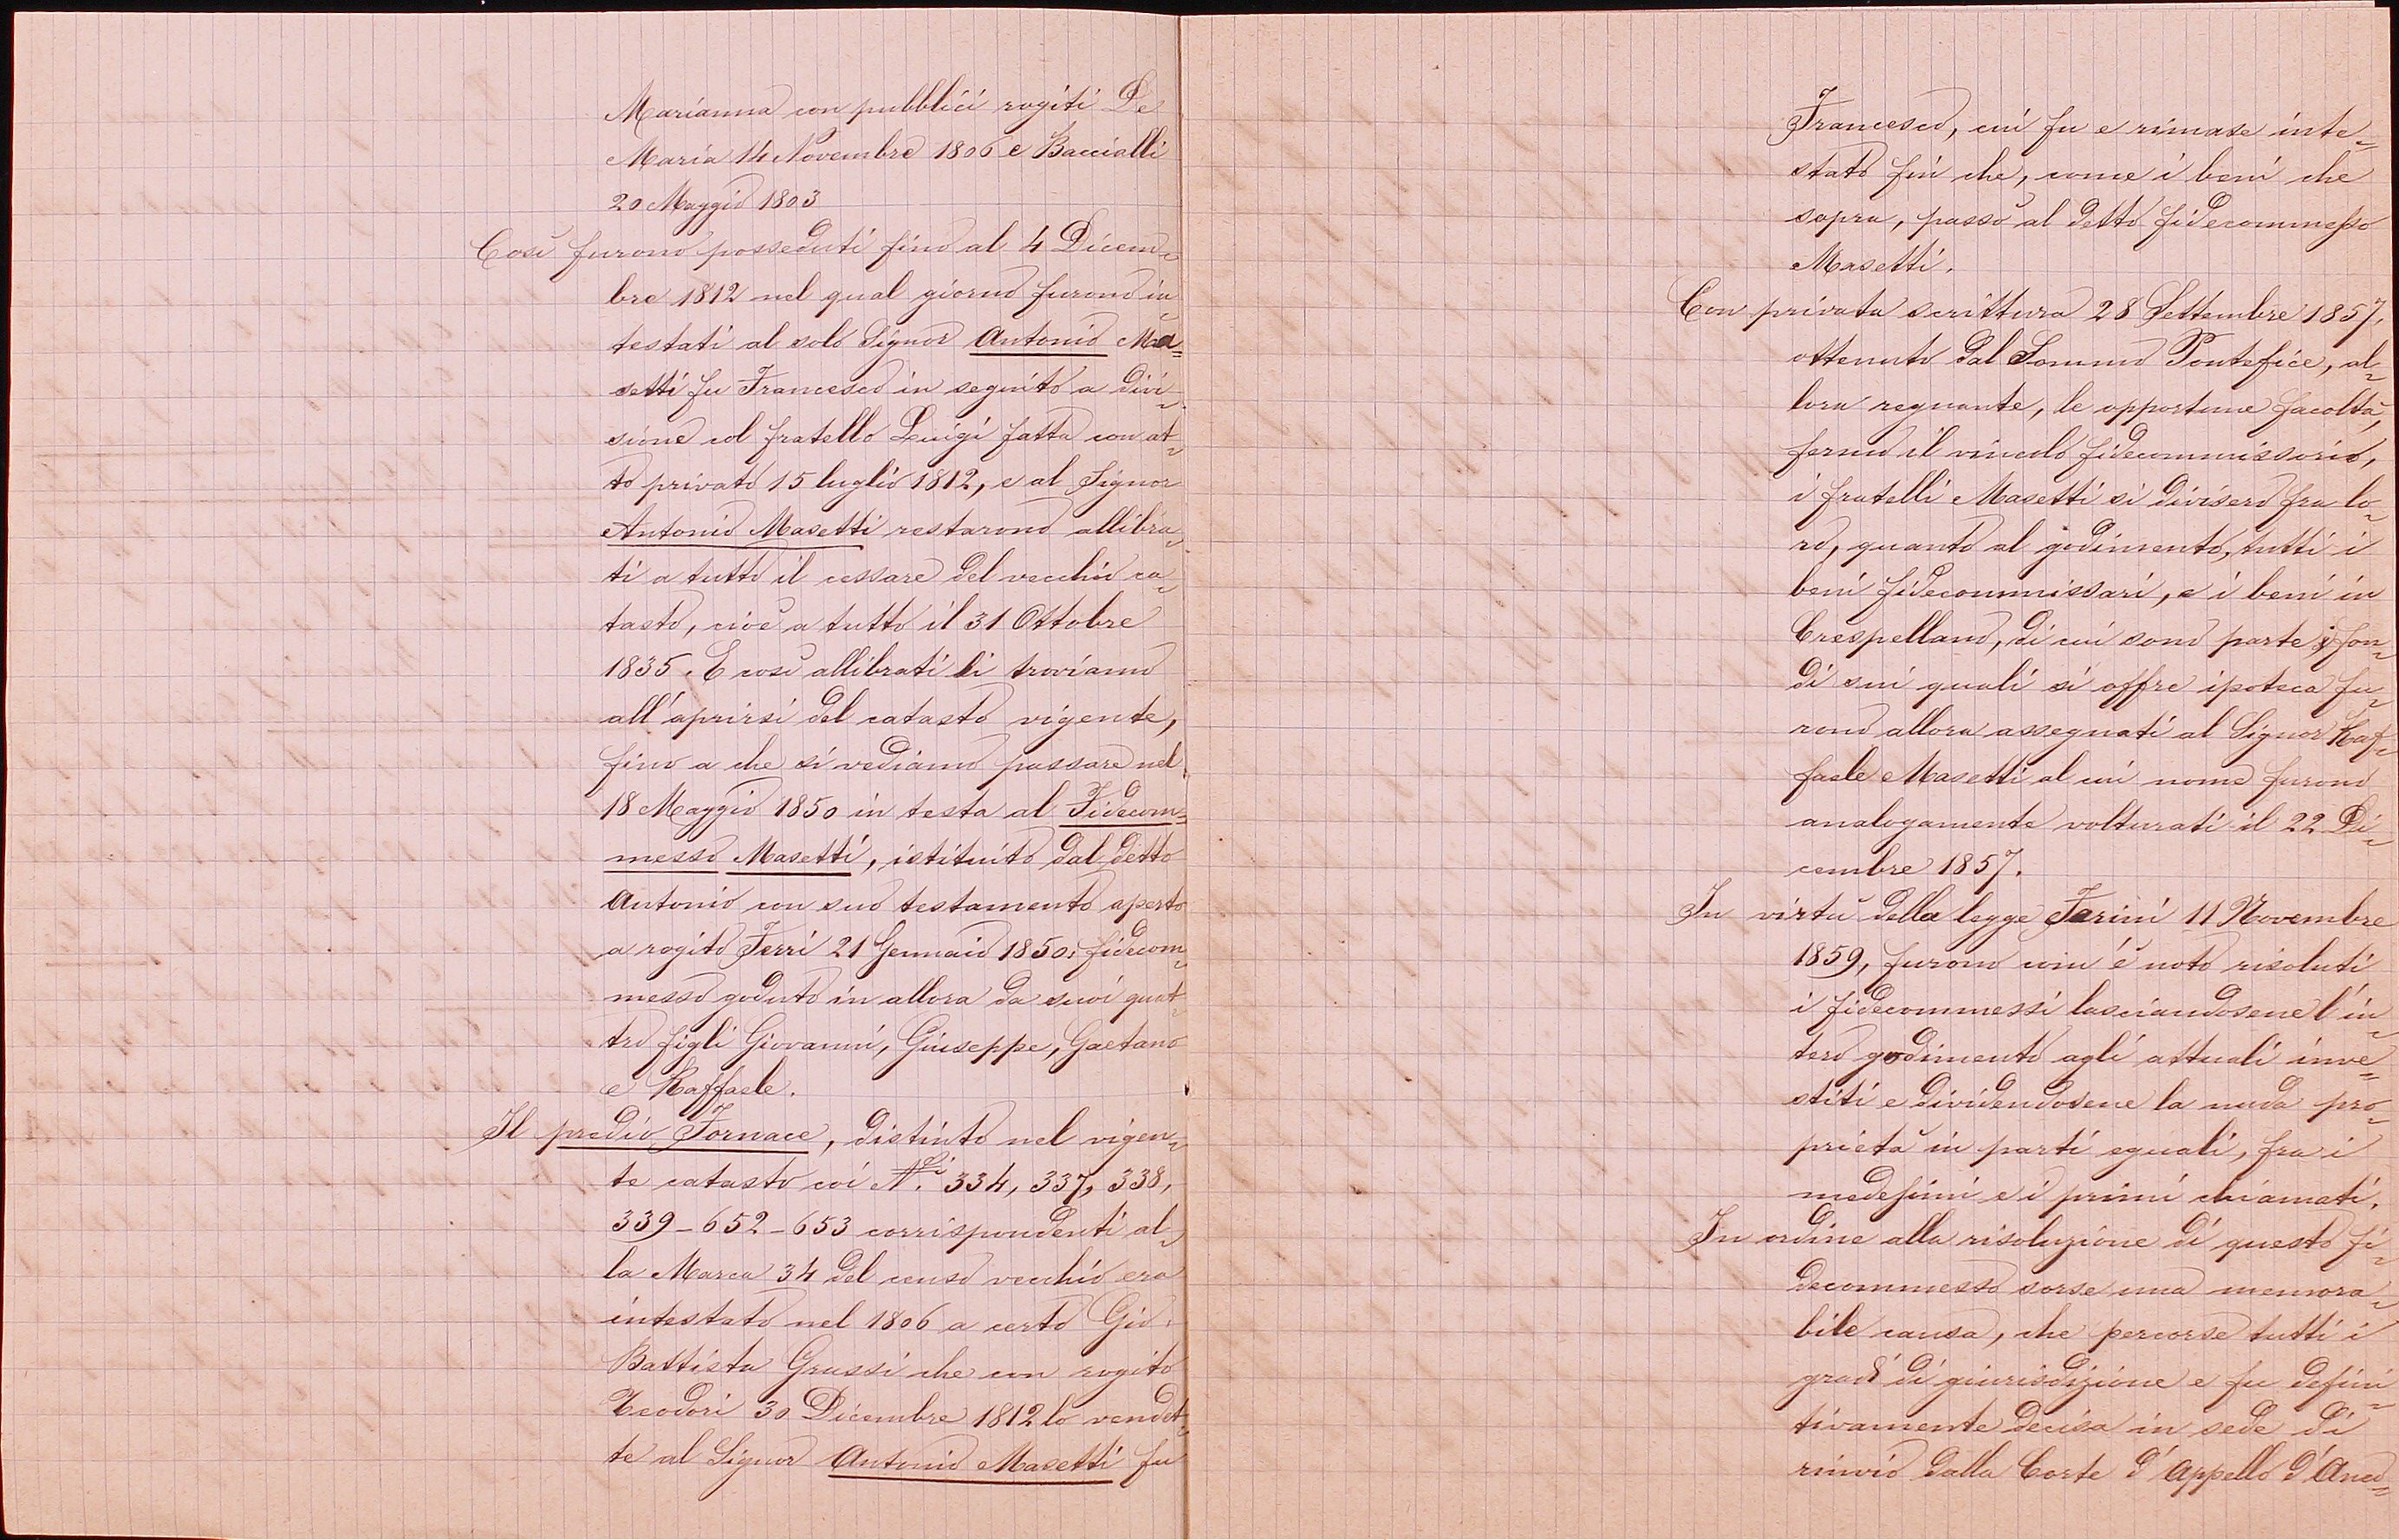 Marianna con pubblici rogiti De
Maria 14 Novembre 1806 e Baccialli
20 Maggio 1803
Così furono posseduti fino al 4 Dicem=
bre 1812 nel qual giorno furono in=
testati al solo Signor Antonio Ma=
setti fu Francesco in seguito a divi=
sione col fratello Luigi fatta con at=
to privato 15 luglio 1812, e al Signor
Antonio Masetti restarono allibra=
ti a tutto il cessare del vecchio ca=
tasto, cioè a tutto il 31 Ottobre
1835. E così allibrati li troviamo
all'aprirsi del catasto vigente,
fino a che si vediamo passare nel
18 Maggio 1850 in testa al Fidecom=
messo Masetti, istituito dal detto
Antonio con suo testamento aperto
a rogito Ferri 21 Gennaio 1850: fidecom=
messo goduto in allora da suoi quat=
tro figli Giovanni, Giuseppe, Gaetano
e Raffaele.
Il predio Fornace, distinto nel vigen=
te catasto coi N.i 334, 337, 338,
339-652-653 corrispondenti al=
la Marca 34 del censo vecchio era
intestato nel 1806 a certo Gio.
Battista Grussi che con rogito
Teodori 30 Dicembre 1812 lo vendet=
te al Signor Antonio Masetti fu
Francesco, cui fu e rimase inte=
stato fin che, come i beni che
sopra, passò al detto fidecommesso
Masetti.
Con privata scrittura 28 Settembre 1857,
ottenuto dal Sommo Pontefice, al=
lora regnante, le opportune facoltà,
fermo il vincolo fidecommissorio,
i fratelli Masetti si divisero fra lo=
ro, quanto al godimento, tutti i
beni fidecommissari, e i beni in
Crespellano, di cui sono parte i fon=
di sui quali si offre ipoteca fu=
rono allora assegnati al Signor Raf=
faele Masetti al cui nome furono
analogamente volturati il 22 Di=
cembre 1857.
In virtù della legge Farini 11 Novembre
1859, furono com'è noto risoluti
i fidecommessi lasciandosene l'in=
tero godimento agli attuali inve=
stiti e dividendosene la nuda pro=
prietà in parti eguali, fra i
medesimi e i primi chiamati.
In ordine alla risoluzione di questo fi=
decommesso sorse una memora=
bile causa, che percorse tutti i
gradi di giurisdizione e fu defini=
tivamente decisa in sede di
rinvio dalla Corte d'Appello d'Anco=